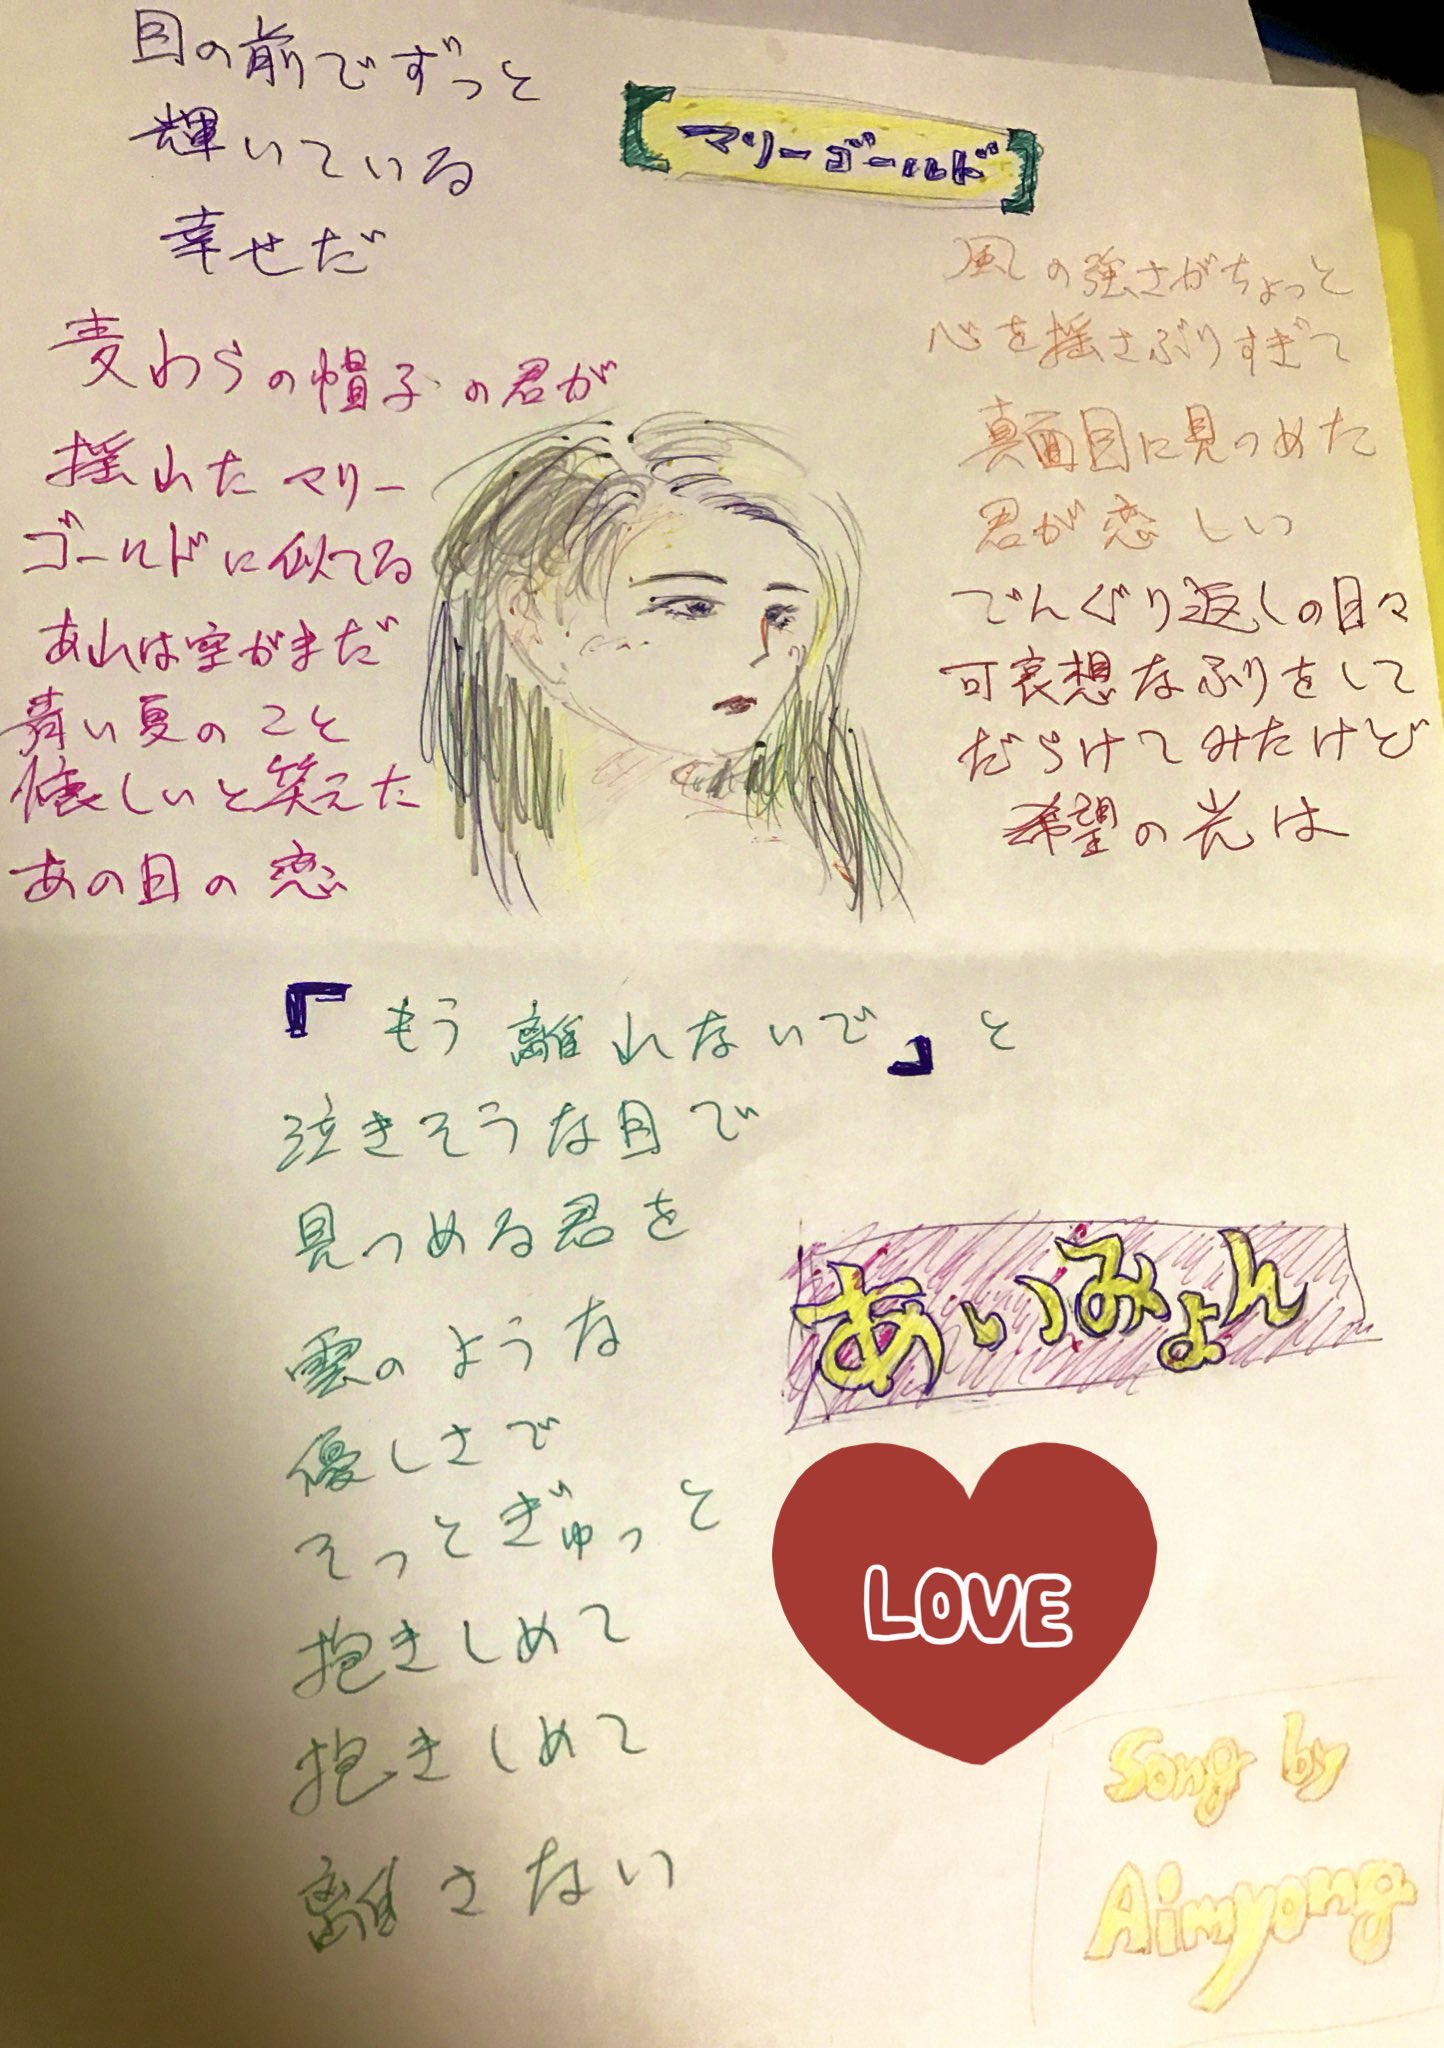 【マリーゴールド】
風の強さがちょっと
心を揺さぶりすぎて
真面目に見つめた
君が恋しい
でんぐり返しの日々
可哀想なふりをして
だらけてみたけど
希望の光は
目の前でずっと
輝いている
幸せだ
麦わらの帽子の君が
揺れたマリー
ゴールドに似てる
あれは空がまだ
青い夏のこと
懐しいと笑えた
あの日の恋
「もう離れないで」と
泣きそうな目で
見つめる君を
雲のような
優しさで
そっとぎゅっと
抱きしめて
抱きしめて
離さない
あいみょん
LOVE
Song by
Aimyong